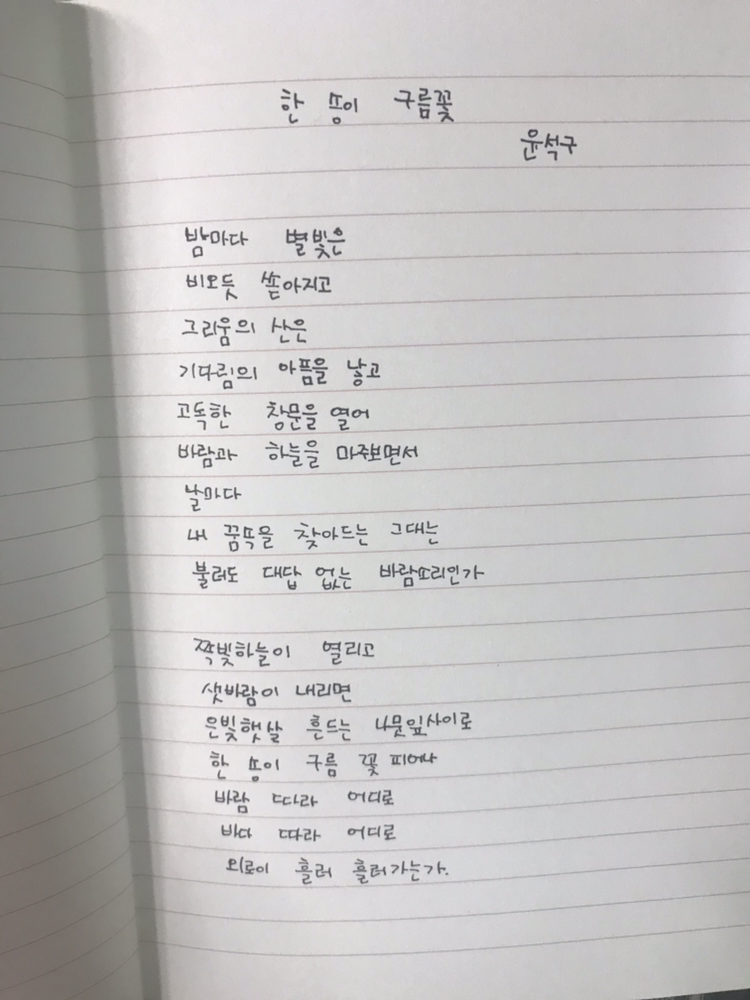 한 송이 구름꽃
윤석구
밤마다 별빛은
비오듯 쏟아지고
그리움의 산은
기다림의 아픔을 낳고
고독한 창문을 열어
바람과 하늘을 마주보면서
날마다
내 꿈속을 찾아드는 그대는
불러도 대답 없는 바람소리인가
쪽빛하늘이 열리고
샛바람이 내리면
은빛햇살 흔드는 나뭇잎사이로
한 송이 구름 꽃 피어나
바람 따라 어디로
바다 따라 어디로
외로이 흘러 흘러가는가.